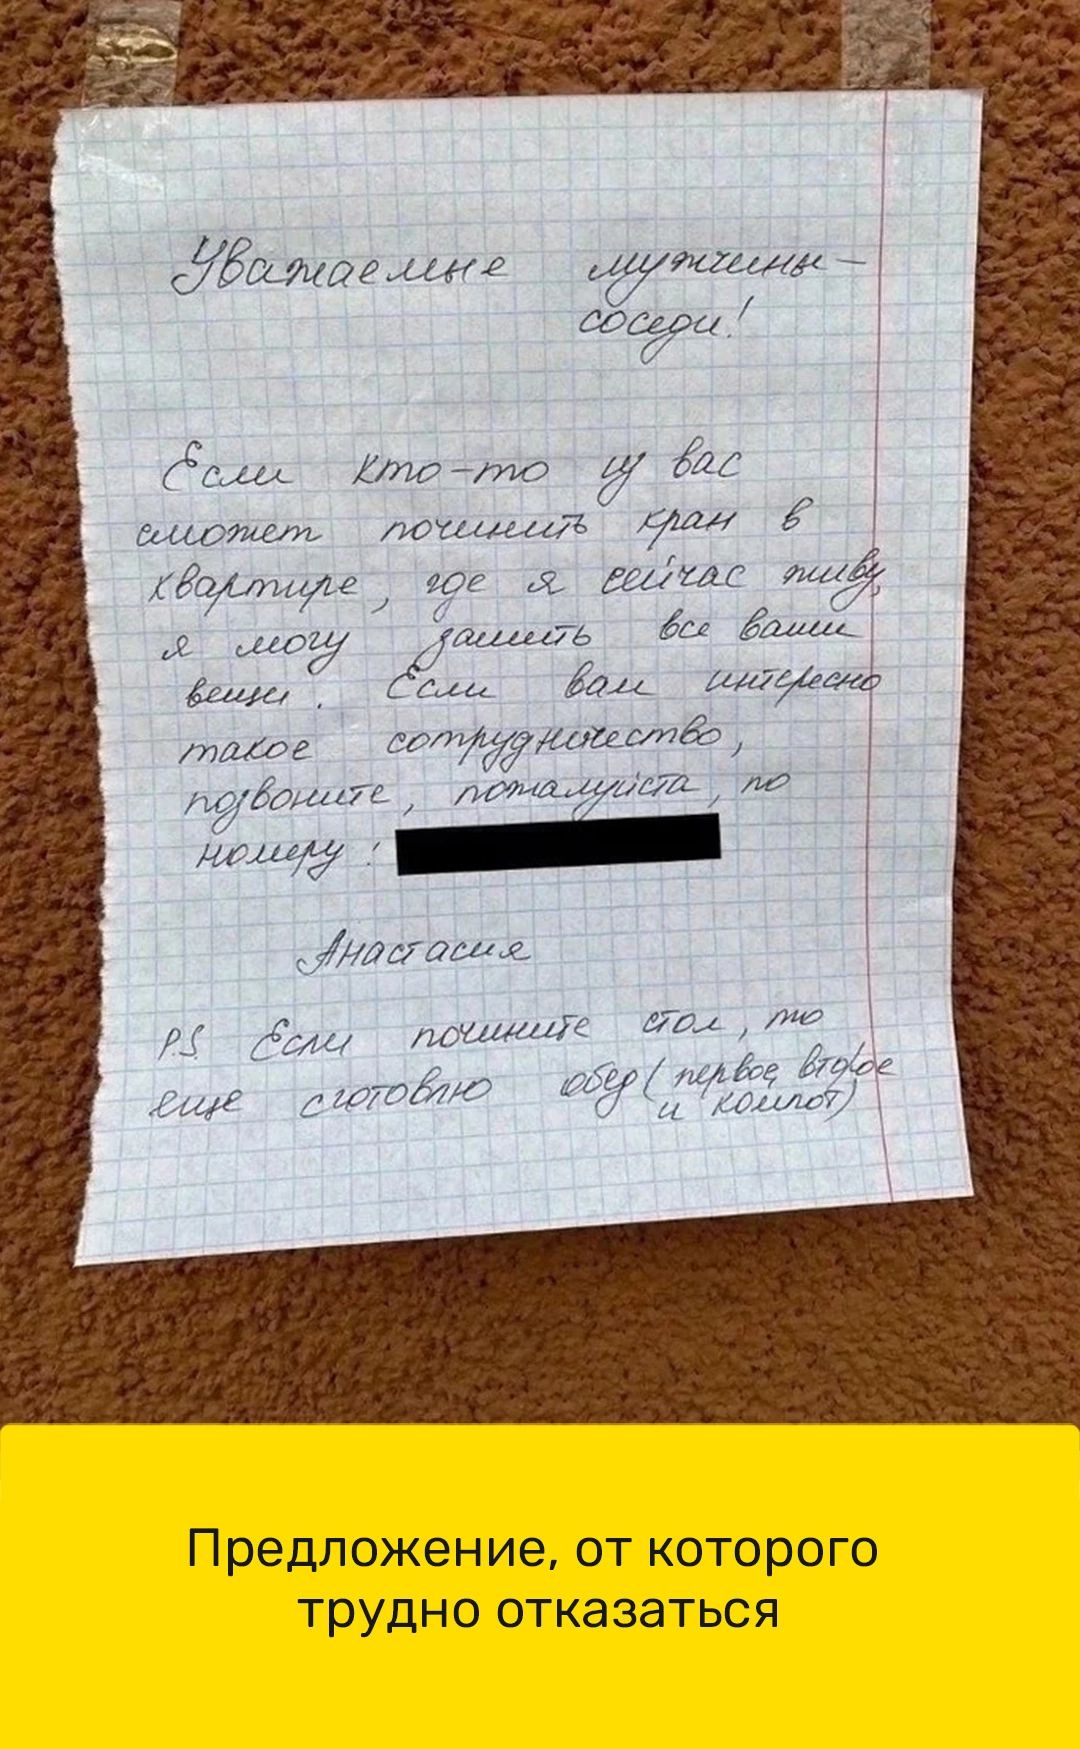 Уважаемые мужчины-
соседи!
Если кто-то из вас
сможет починить кран в
квартире, где я сейчас живу,
я могу зашить все ваши
вещи. Если вам интересно
такое сотрудничество,
позвоните, пожалуйста, по
номеру:
Анастасия
P.S. Если почините стол, то
еще сготовлю обед (первое, второе
и компот)
Предложение, от которого
трудно отказаться